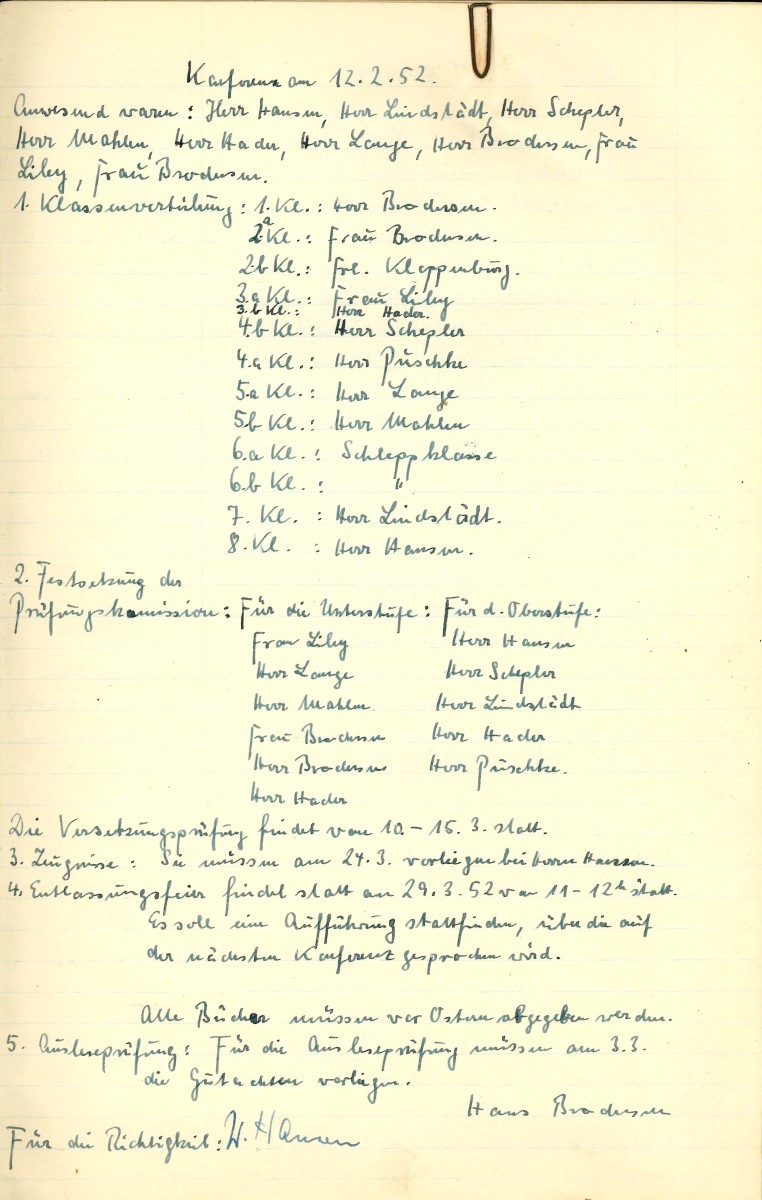 Konferenz am 12.2.52.
Anwesend waren: Herr Hansen, Herr Lindstädt, Herr Schepler,
Herr Mahlen, Herr Hader, Herr Lange, Herr Brodersen, Frau
Liley, Frau Brodersen.
1. Klassenverteilung: 1. Kl.: Herr Brodersen.
2.a Kl.: Frau Brodersen.
2.b Kl.: Frl. Kloppenburg.
3.a Kl.: Frau Liley
3.b Kl.: Herr Hader.
4.b Kl.: Herr Schepler
4.a Kl.: Herr Püschke
5.a Kl.: Herr Lange
5.b Kl.: Herr Mahlen
6.a Kl.: Schleppklasse
6.b Kl.: "
7. Kl.: Herr Lindstädt.
8. Kl.: Herr Hansen.
2. Festsetzung der
Prüfungskomission: Für die Unterstufe: Für d. Oberstufe:
Frau Liley Herr Hansen
Herr Lange Herr Schepler
Herr Mahlen Herr Lindstädt
Frau Brodersen Herr Hader
Herr Brodersen Herr Püschke.
Herr Hader
Die Versetzungsprüfung findet vom 10. - 15. 3. statt.
3. Zeugnisse: Sie müssen am 24.3. vorliegen bei Herrn Hansen.
4. Entlassungsfeier findet statt am 29.3.52 von 11 - 12 h statt.
Es soll eine Aufführung stattfinden, über die auf
der nächsten Konferenz gesprochen wird.
Alle Bücher müssen vor Ostern abgegeben werden.
5. Ausleseprüfung: Für die Ausleseprüfung müssen am 3.3.
die Gutachten vorliegen.
Hans Brodersen
Für die Richtigkeit: W. Hansen